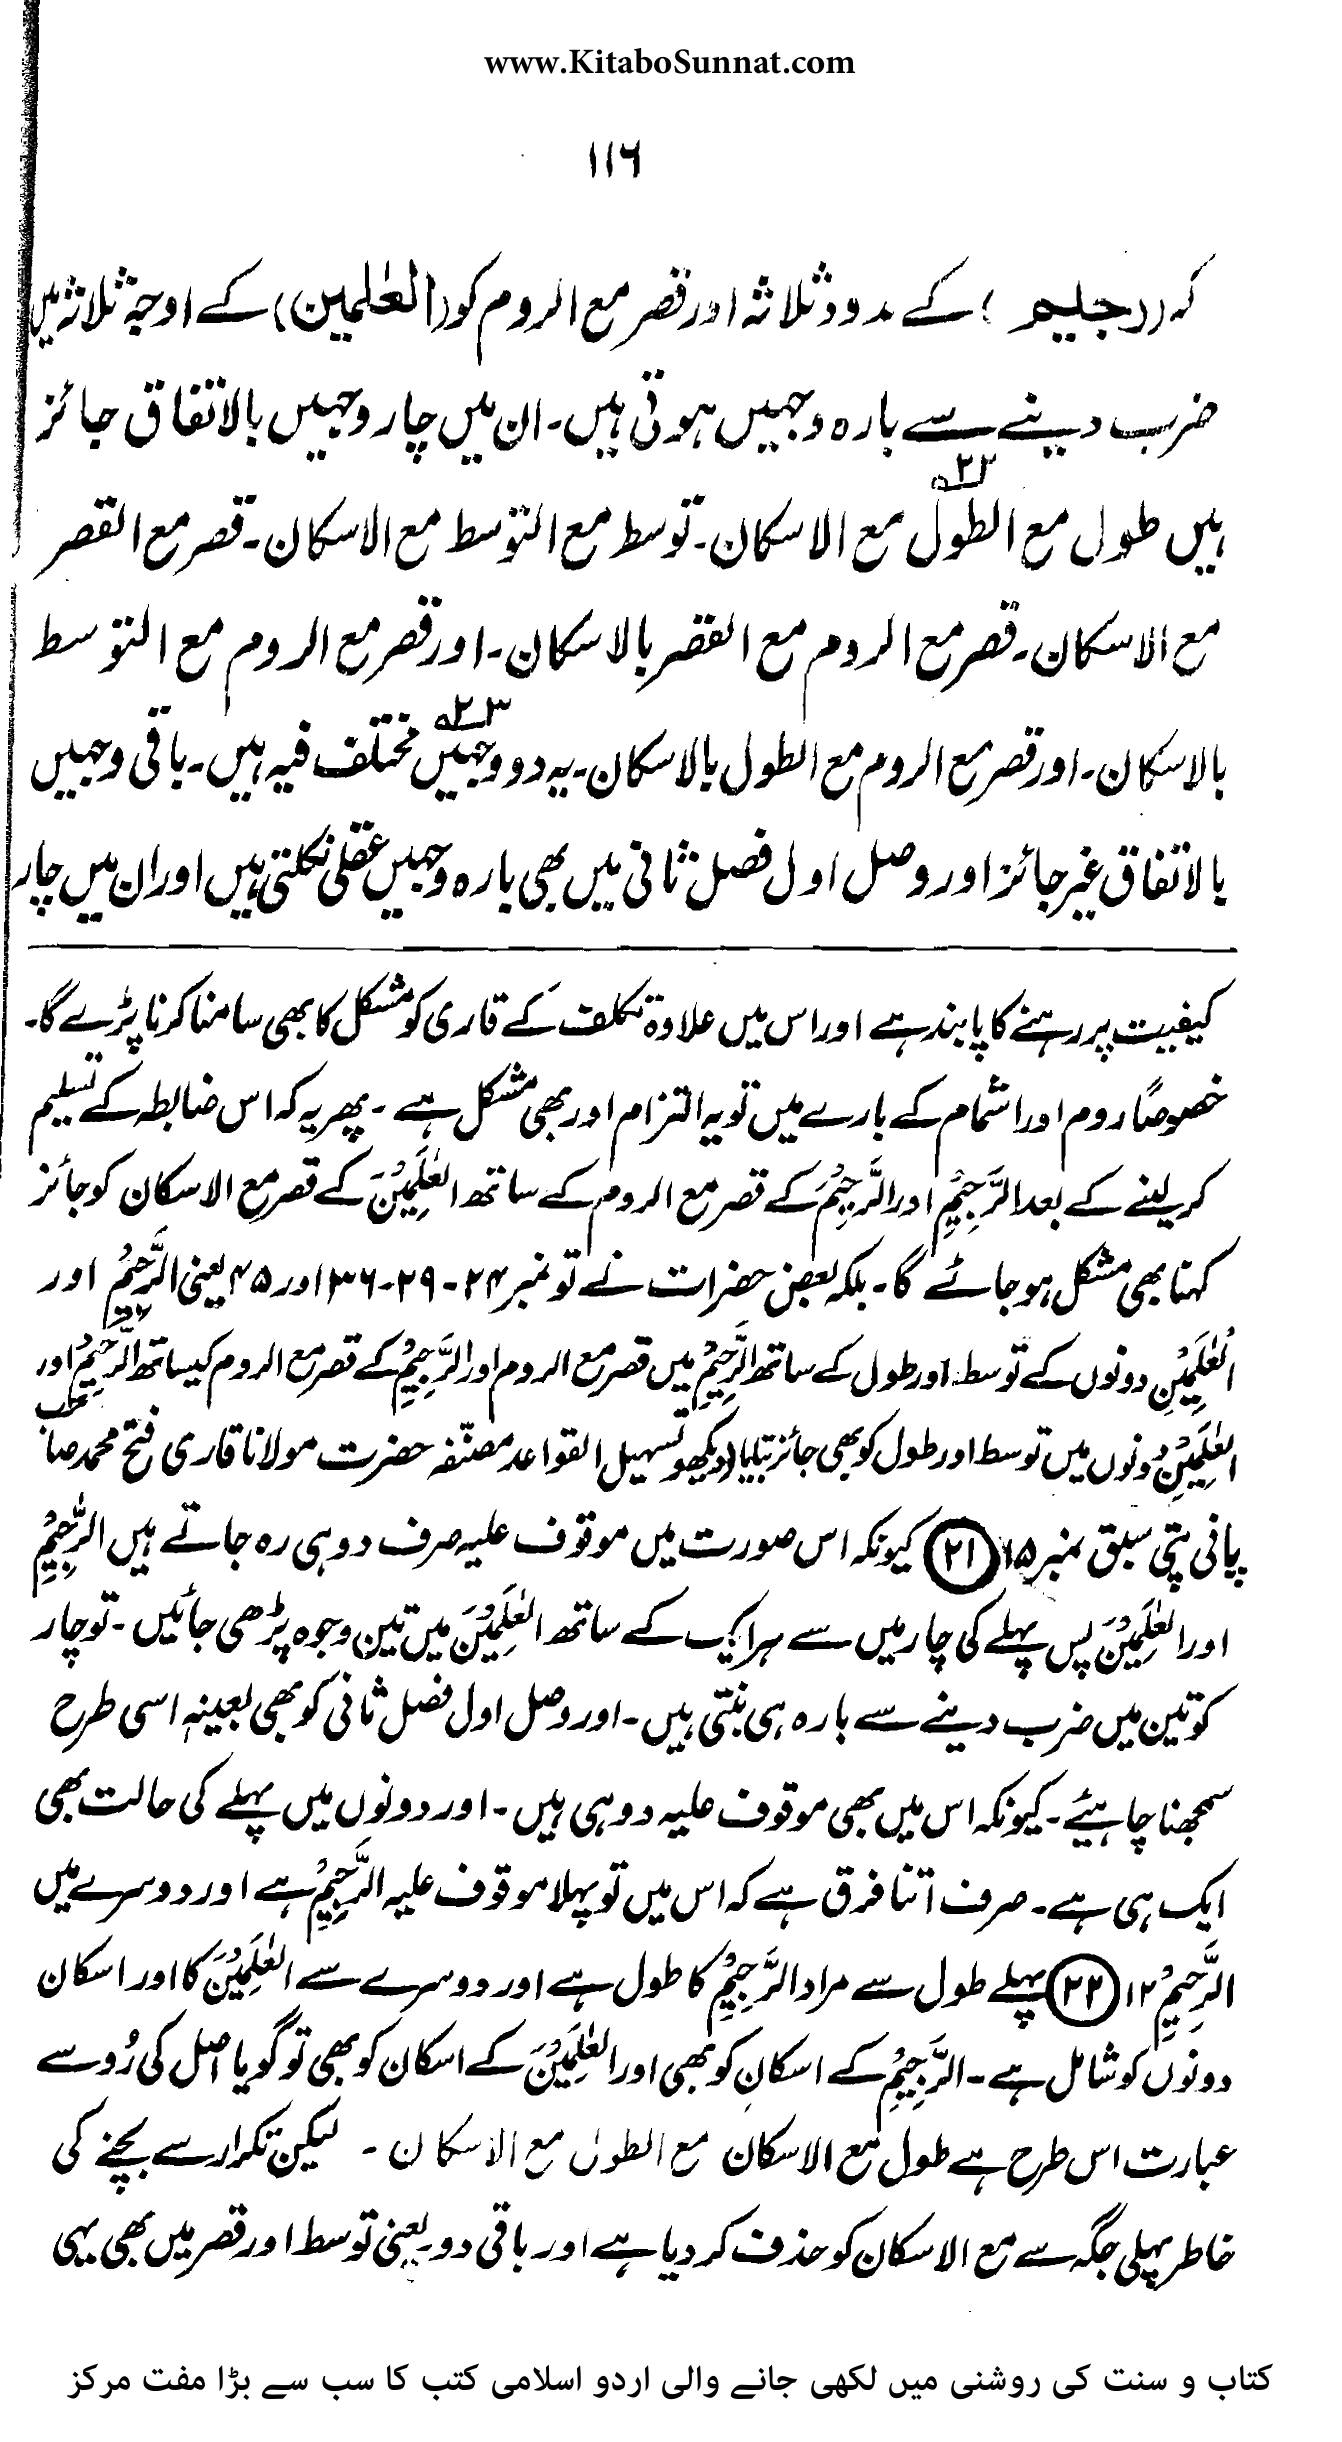 www.KitaboSunnat.com
١١٦
کہ (رجلیم) کے مدود ثلاثہ اور قصر مع الروم کو (العٰلمین) کے اوجۂ ثلاثہ میں
ضرب دینے سے بارہ وجہیں ہوتی ہیں۔ ان میں چار وجہیں بالاتفاق جائز
ہیں طول مع الطول ۲۲ مع الاسکان۔ توسط مع التوسط مع الاسکان۔ قصر مع القصر
مع الاسکان۔ قصر مع الروم مع القصر بالاسکان۔ اور قصر مع الروم مع التوسط
بالاسکان۔ اور قصر مع الروم مع الطول بالاسکان۔ یہ دو وجہیں ۲۳ مختلف فیہ ہیں۔ باقی وجہیں
بالاتفاق غیر جائز اور وصل اول فصل ثانی میں بھی بارہ وجہیں عقلی نکلتی ہیں اور ان میں چار
کیفیت پر رہنے کا پابند ہے اور اس میں علاوۃ تکلف کے قاری کو مشکل کا بھی سامنا کرنا پڑے گا۔
خصوصًا روم اور اشمام کے بارے میں تو یہ التزام اور بھی مشکل ہے۔ پھر یہ کہ اس ضابطہ کے تسلیم
کر لینے کے بعد الرَّجِیْمِ اور الرَّحِیْمِ کے قصر مع الروم کے ساتھ العٰلَمِیْنَ کے قصر مع الاسکان کو جائز
کہنا بھی مشکل ہو جائے گا۔ بلکہ بعض حضرات نے تو نمبر ۲۴-۲۹-۳۶ اور ۴۵ یعنی الرَّحِیْمِ اور
الْعٰلَمِیْنَ دونوں کے توسط اور طول کے ساتھ الرَّجِیْمِ میں قصر مع الروم اور الرَّجِیْمِ کے قصر مع الروم کیساتھ الرَّحِیْمِ اور
العٰلَمِیْنَ دونوں میں توسط اور طول کو بھی جائز بتلایا (دیکھو تسہیل القواعد مصنّفہ حضرت مولانا قاری فتح محمد صاحب
پانی پتی سبق نمبر ۱۵ (۲۱) کیونکہ اس صورت میں موقوف علیہ صرف دو ہی رہ جاتے ہیں الرَّجِیْمِ
اور العٰلَمِیْنَ پس پہلے کی چار میں سے ہر ایک کے ساتھ العٰلَمِیْنَ میں تین وجوہ پڑھی جائیں۔ تو چار
کو تین میں ضرب دینے سے بارہ ہی بنتی ہیں۔ اور وصل اول فصل ثانی کو بھی بعینہٖ اسی طرح
سمجھنا چاہیئے۔ کیونکہ اس میں بھی موقوف علیہ دو ہی ہیں۔ اور دونوں میں پہلے کی حالت بھی
ایک ہی ہے۔ صرف اتنا فرق ہے کہ اس میں تو پہلا موقوف علیہ الرَّجِیْمِ ہے اور دوسرے میں
الرَّحِیْمِ ۱۲ (۲۲) پہلے طول سے مراد الرَّجِیْمِ کا طول ہے اور دوسرے سے العٰلَمِیْنَ کا اور اسکان
دونوں کو شامل ہے۔ الرَّجِیْمِ کے اسکان کو بھی اور العٰلَمِیْنَ کے اسکان کو بھی تو گویا اصل کی رُو سے
عبارت اس طرح ہے طول مع الاسکان مع الطول مع الاسکان۔ لیکن تکرار سے بچنے کی
خاطر پہلی جگہ سے مع الاسکان کو حذف کر دیا ہے اور باقی دو یعنی توسط اور قصر میں بھی یہی
کتاب و سنت کی روشنی میں لکھی جانے والی اردو اسلامی کتب کا سب سے بڑا مفت مرکز